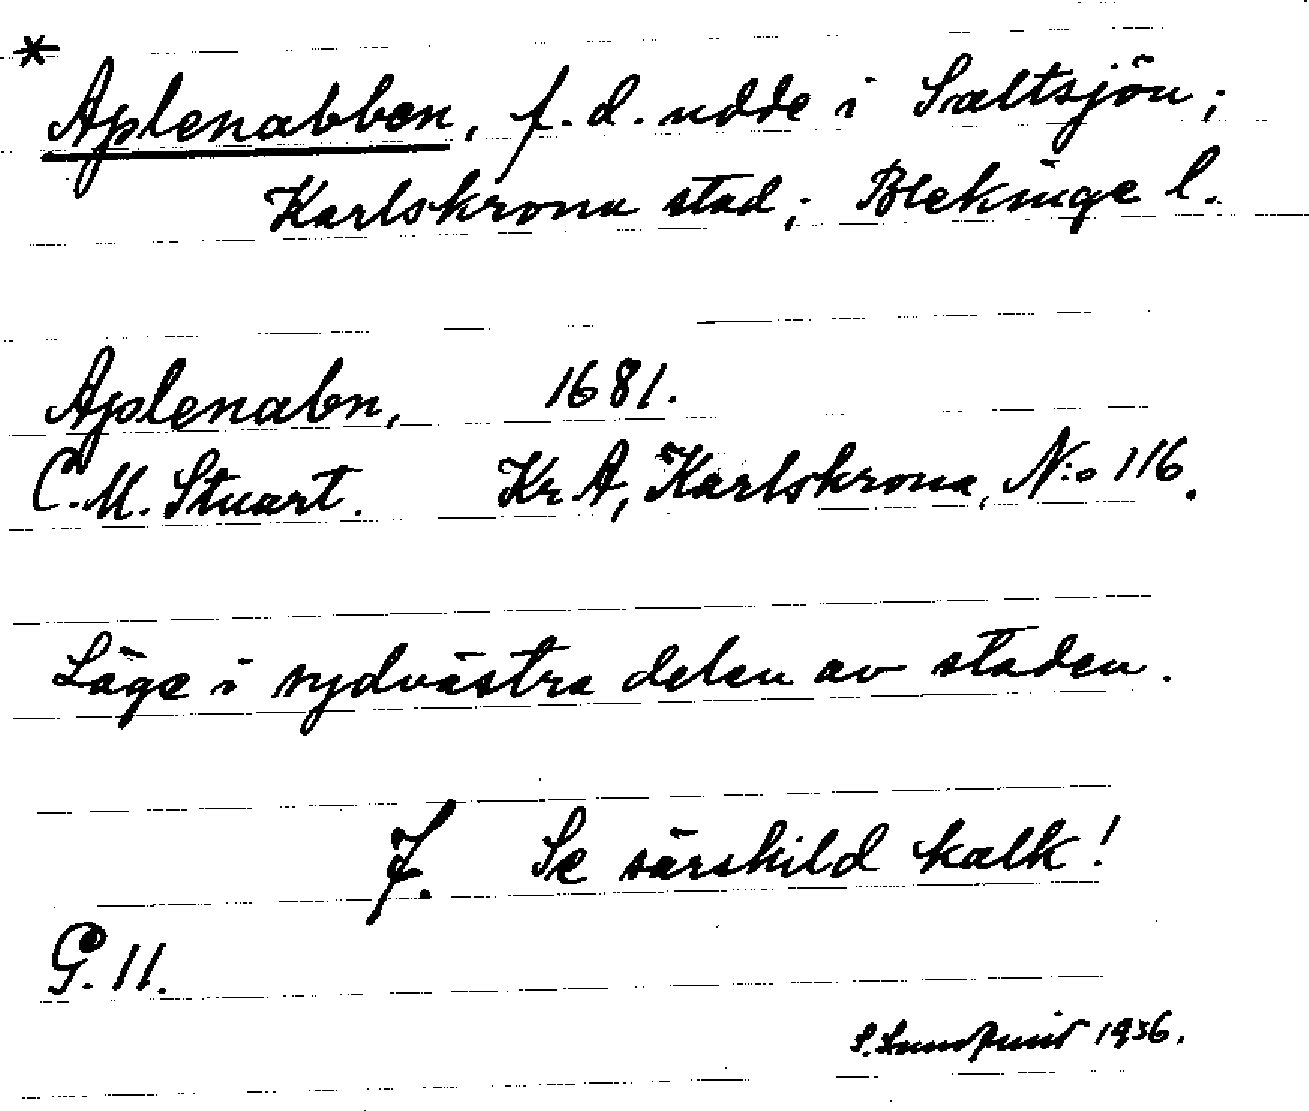 *
Aplenabben, f.d. udde i Saltsjön;
Karlskrona stad; Blekinge l.
Aplenabn, 1681.
C.M. Stuart. KrA, Karlskrona, N:o 116.
Läge i sydvästra delen av staden.
F. Se särskild kalk!
G. 11.
S. Lundquist 1936.